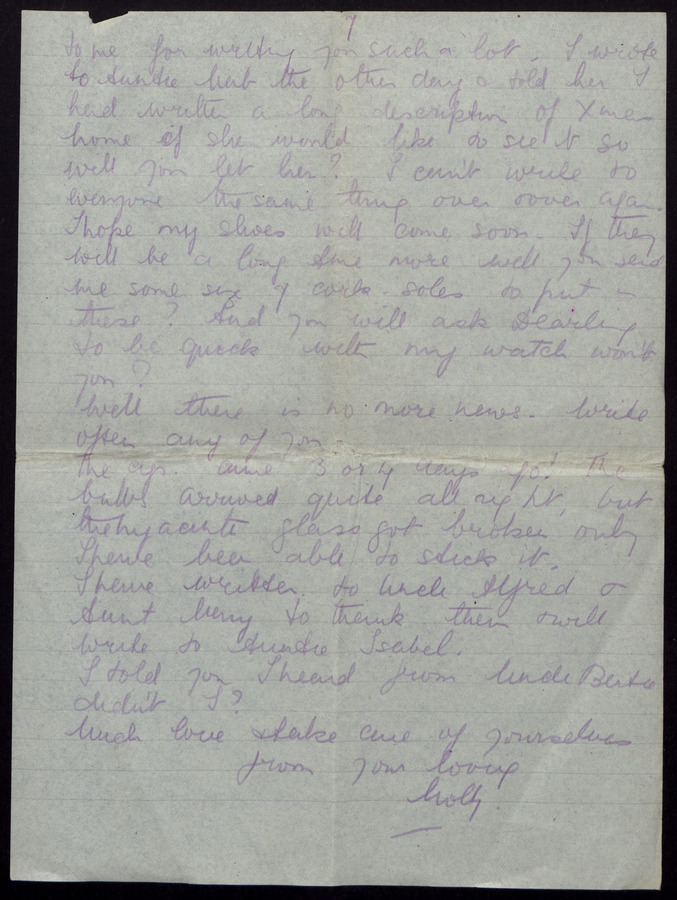 7
to me for writing you such a lot. I wrote
to Auntie the other day & told her I
had written a long description of Xmas
home if she would like to see it so
will you let her? I can't write to
everyone the same thing over & over again.
I hope my shoes will come soon. If they
will be a long time more will you send
me some size 7 cork soles to put in
these? And you will ask Dearling
to be quick with my watch won't
you?
Well there is no more news. Write
often any of you.
The came 3 or 4 days ago. The
bulbs arrived quite all right, but
the hyacinth glass got broken only
I have been able to stick it.
I have written to Uncle Alfred &
Aunt to thank them & will
write to Auntie Isabel.
I told you I heard from Uncle Bertie
didn't I?
Much love & take care of yourselves
from your loving
Molly.